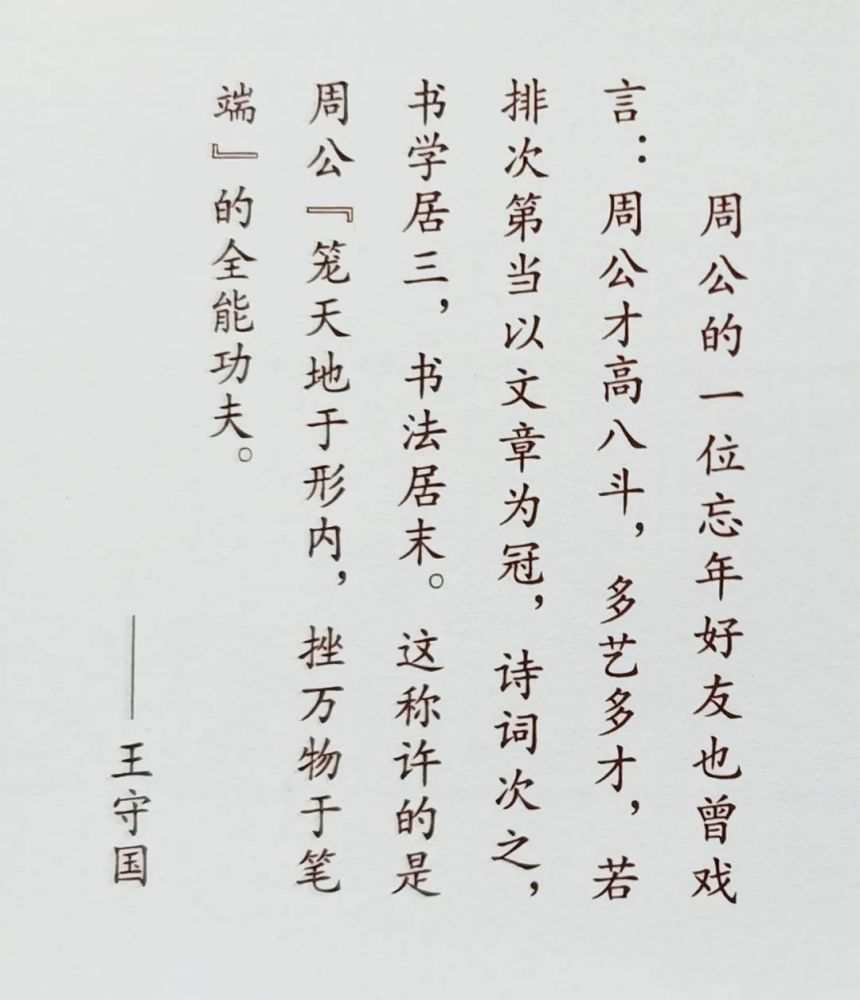 周公的一位忘年好友也曾戏
言：周公才高八斗，多艺多才，若
排次第当以文章为冠，诗词次之，
书学居三，书法居末。这称许的是
周公『笼天地于形内，挫万物于笔
端』的全能功夫。
——王守国